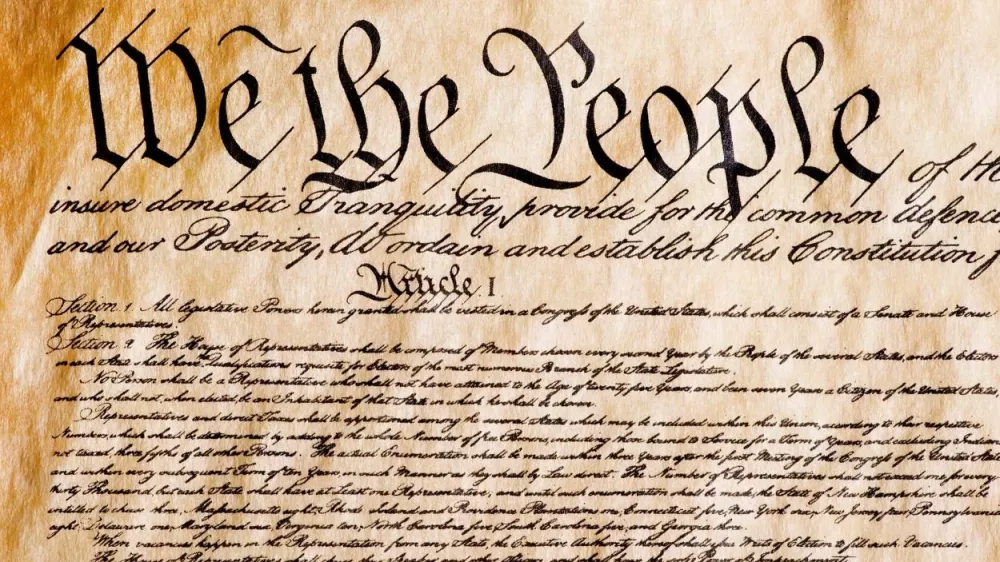 We the People of
insure domestic Tranquility, provide for the common defence
and our Posterity, do ordain and establish this Constitution f
Article. I.
Section 1. All legislative Powers herein granted shall be vested in a Congress of the United States, which shall consist of a Senate and House
of Representatives.
Section 2. The House of Representatives shall be composed of Members chosen every second Year by the People of the several States, and the Electors
in each State shall have the Qualifications requisite for Electors of the most numerous Branch of the State Legislature.
No Person shall be a Representative who shall not have attained to the Age of twenty five Years, and been seven Years a Citizen of the United States,
and who shall not, when elected, be an Inhabitant of that State in which he shall be chosen.
Representatives and direct Taxes shall be apportioned among the several States which may be included within this Union, according to their respective
Numbers, which shall be determined by adding to the whole Number of free Persons, including those bound to Service for a Term of Years, and excluding Indians
not taxed, three fifths of all other Persons. The actual Enumeration shall be made within three Years after the first Meeting of the Congress of the United States
and within every subsequent Term of ten Years, in such Manner as they shall by Law direct. The Number of Representatives shall not exceed one for every
thirty Thousand, but each State shall have at Least one Representative; and until such enumeration shall be made, the State of New Hampshire shall be
entitled to chuse three, Massachusetts eight, Rhode Island and Providence Plantations one, Connecticut five, New York six, New Jersey four, Pennsylvania
eight, Delaware one, Maryland six, Virginia ten, North Carolina five, South Carolina five, and Georgia three.
When vacancies happen in the Representation from any State, the Executive Authority thereof shall issue Writs of Election to fill such Vacancies.
The House of Representatives shall chuse their Speaker and other Officers; and shall have the sole Power of Impeachment.